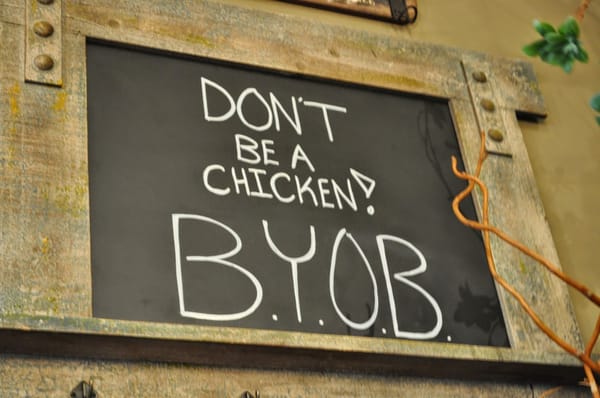 DON'T
BE A
CHICKEN!
B.Y.O.B.